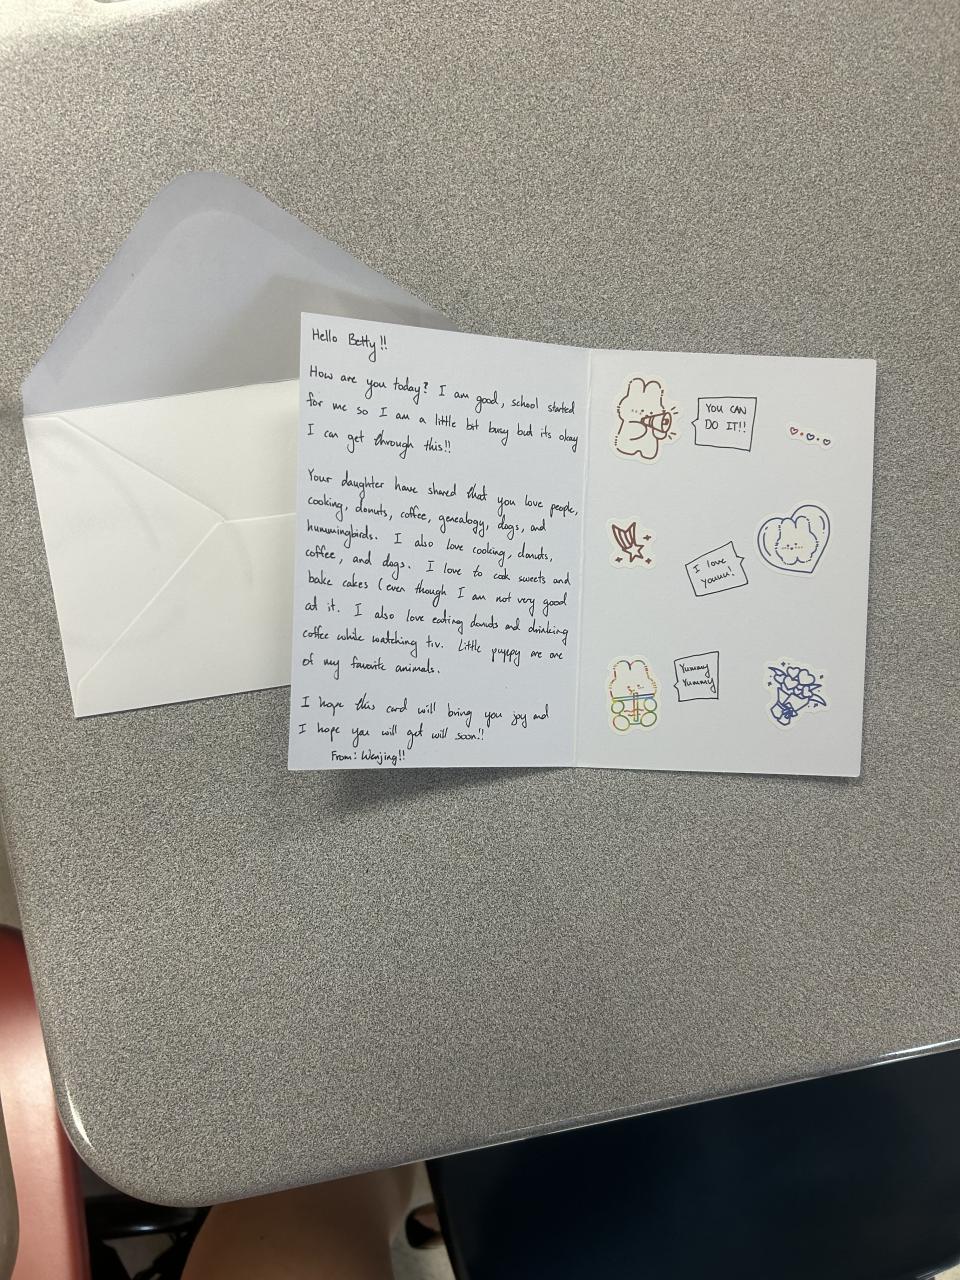 Hello Betty!!
How are you today? I am good, school started
for me so I am a little bit busy but its okay
I can get through this!!
Your daughter have shared that you love people,
cooking, donuts, coffee, genealogy, dogs, and
hummingbirds. I also love cooking, donuts,
coffee, and dogs. I love to cook sweets and
bake cakes (even though I am not very good
at it. I also love eating donuts and drinking
coffee while watching t.v. Little puppy are one
of my favorite animals.
I hope this card will bring you joy and
I hope you will get will soon!!
From: Wenjing!!
YOU CAN
DO IT!!
I love
youuu!
Yummy
Yummy